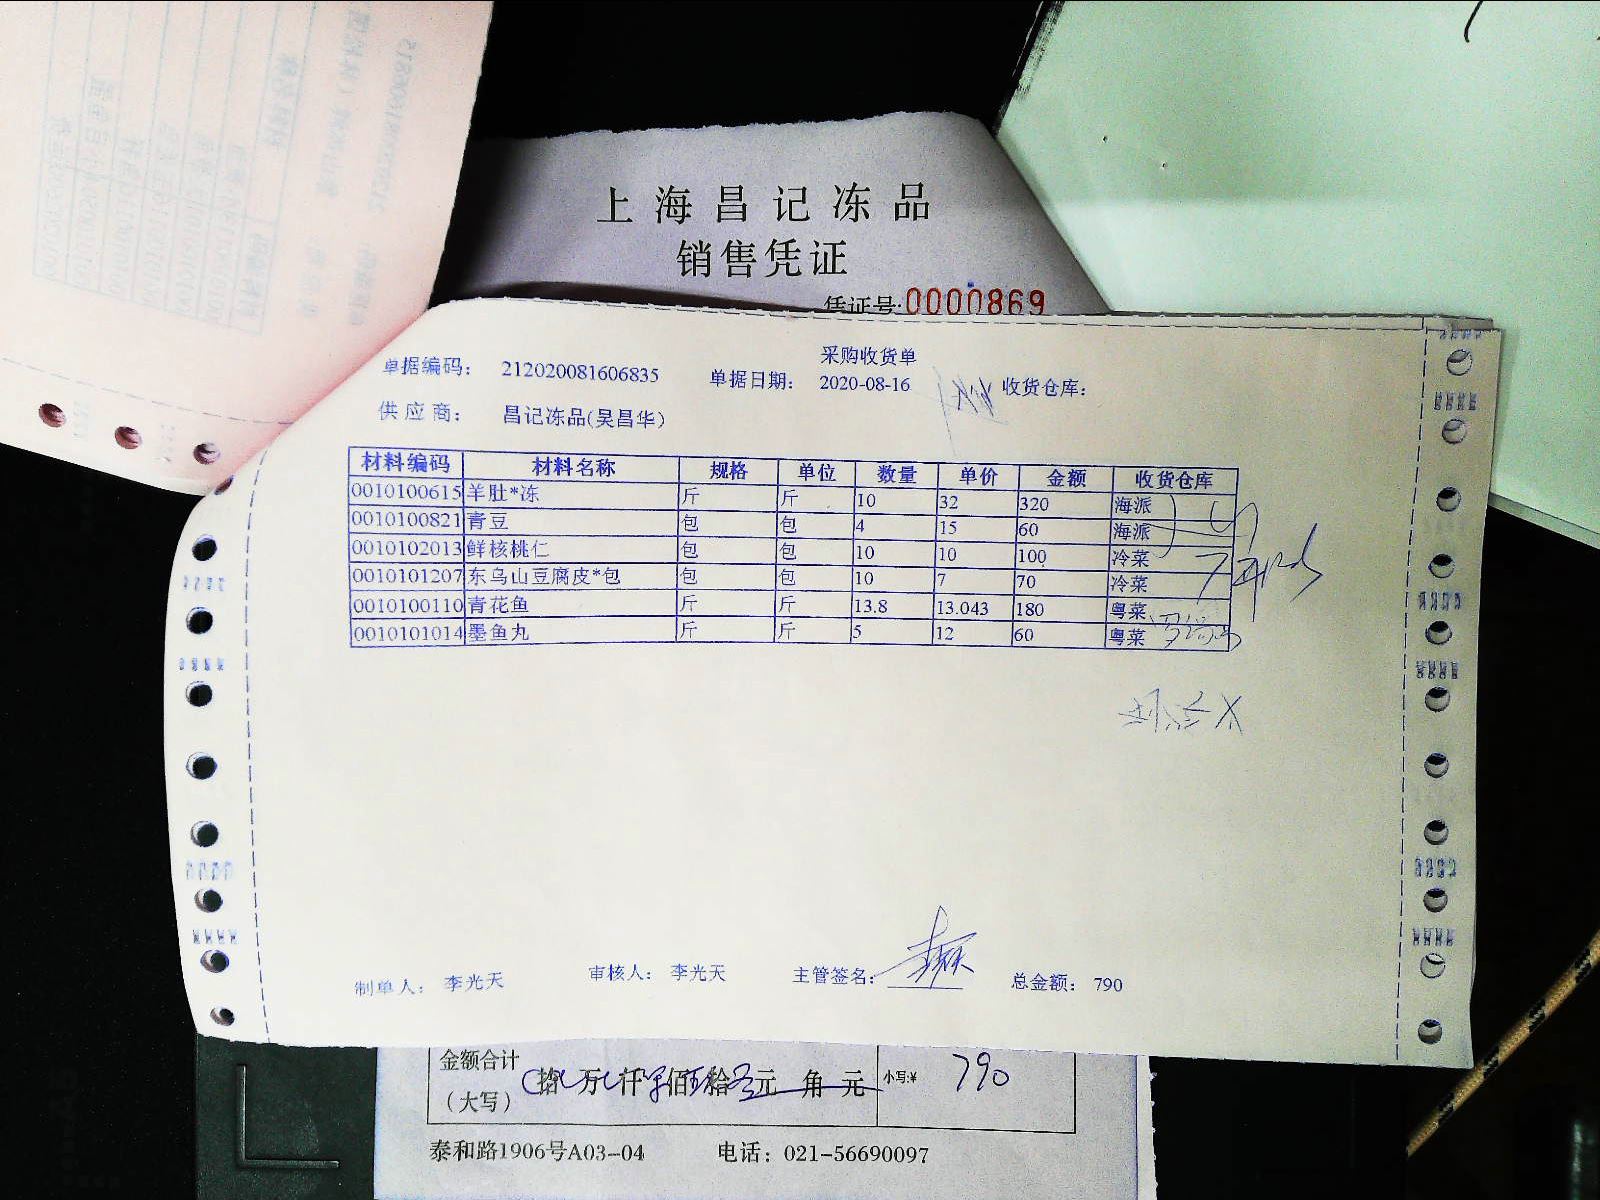 上海昌记冻品
销售凭证
凭证号:0000869
采购收货单
单据编码： 212020081606835 单据日期： 2020-08-16 收货仓库：
供应商： 昌记冻品(吴昌华)
材料编码 材料名称 规格 单位 数量 单价 金额 收货仓库
0010100615 羊肚*冻 斤 斤 10 32 320 海派
0010100821 青豆 包 包 4 15 60 海派
0010102013 鲜核桃仁 包 包 10 10 100 冷菜
0010101207 东乌山豆腐皮*包 包 包 10 7 70 冷菜
0010100110 青花鱼 斤 斤 13.8 13.043 180 粤菜
0010101014 墨鱼丸 斤 斤 5 12 60 粤菜
制单人： 李光天 审核人： 李光天 主管签名： 总金额： 790
金额合计
（大写） 拾 万 仟 佰 拾 元 角 元 小写:¥ 790
泰和路1906号A03-04 电话：021-56690097